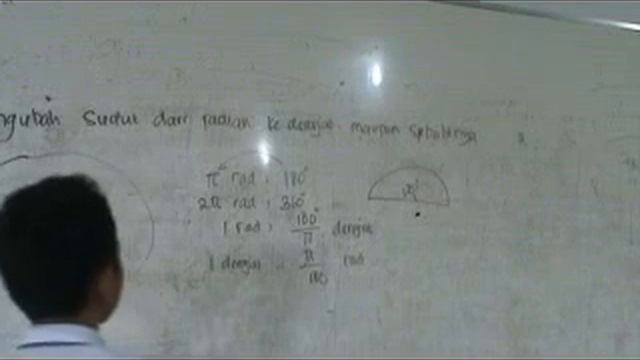 ngubah Sudut dari radian ke derajat maupun sebaliknya
π rad = 180°
2π rad = 360°
1 rad = 180°/π derajat
1 derajat = π/180 rad